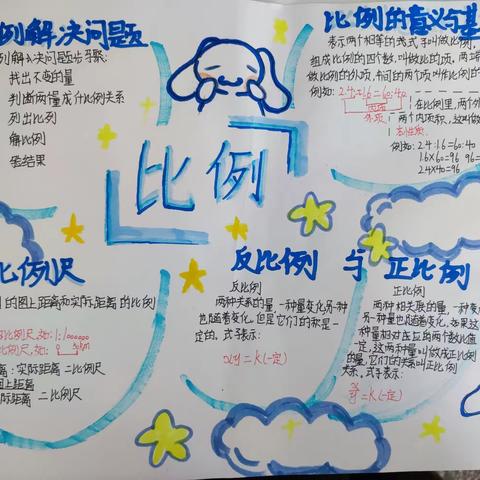 例解决问题
例解决问题步骤:
找出不变的量
判断两懂成什比例关系
列出比列
解比例
佥结果
比例的意义与基
表示两个相等的式子叫做比例,
组成比例的四个数,叫做比的项,两端
做比例的外项,中间的两个项叫做比例的
例如: 2.4:1.6=60:40
内项
外项
在比例里,两个外
两个内项积,这叫做
本性质.
例如: 2.4:1.6=60:40
1.6×60=96 96=
2.4×40=96
比例
比例尺
的图上距离和实际距离的比例
比例尺,如: 1:100000
比例尺,如:
离:实际距离=比例尺
图上距离
际距离=比例尺
反比例与正比例
反比例
两种关系的量,一种量变化另一种
也随着变化,但是它们的积是一
定的。式子表示:
xy=k(一定)
正比例
两种相关联的量,一种变
另一种量也随着变化,如果这
种量相对应的两个数比值
一定,这两种量叫做成正比例
的量,它们的关系叫正比例
关系。式子表示:
x/y=k(一定)